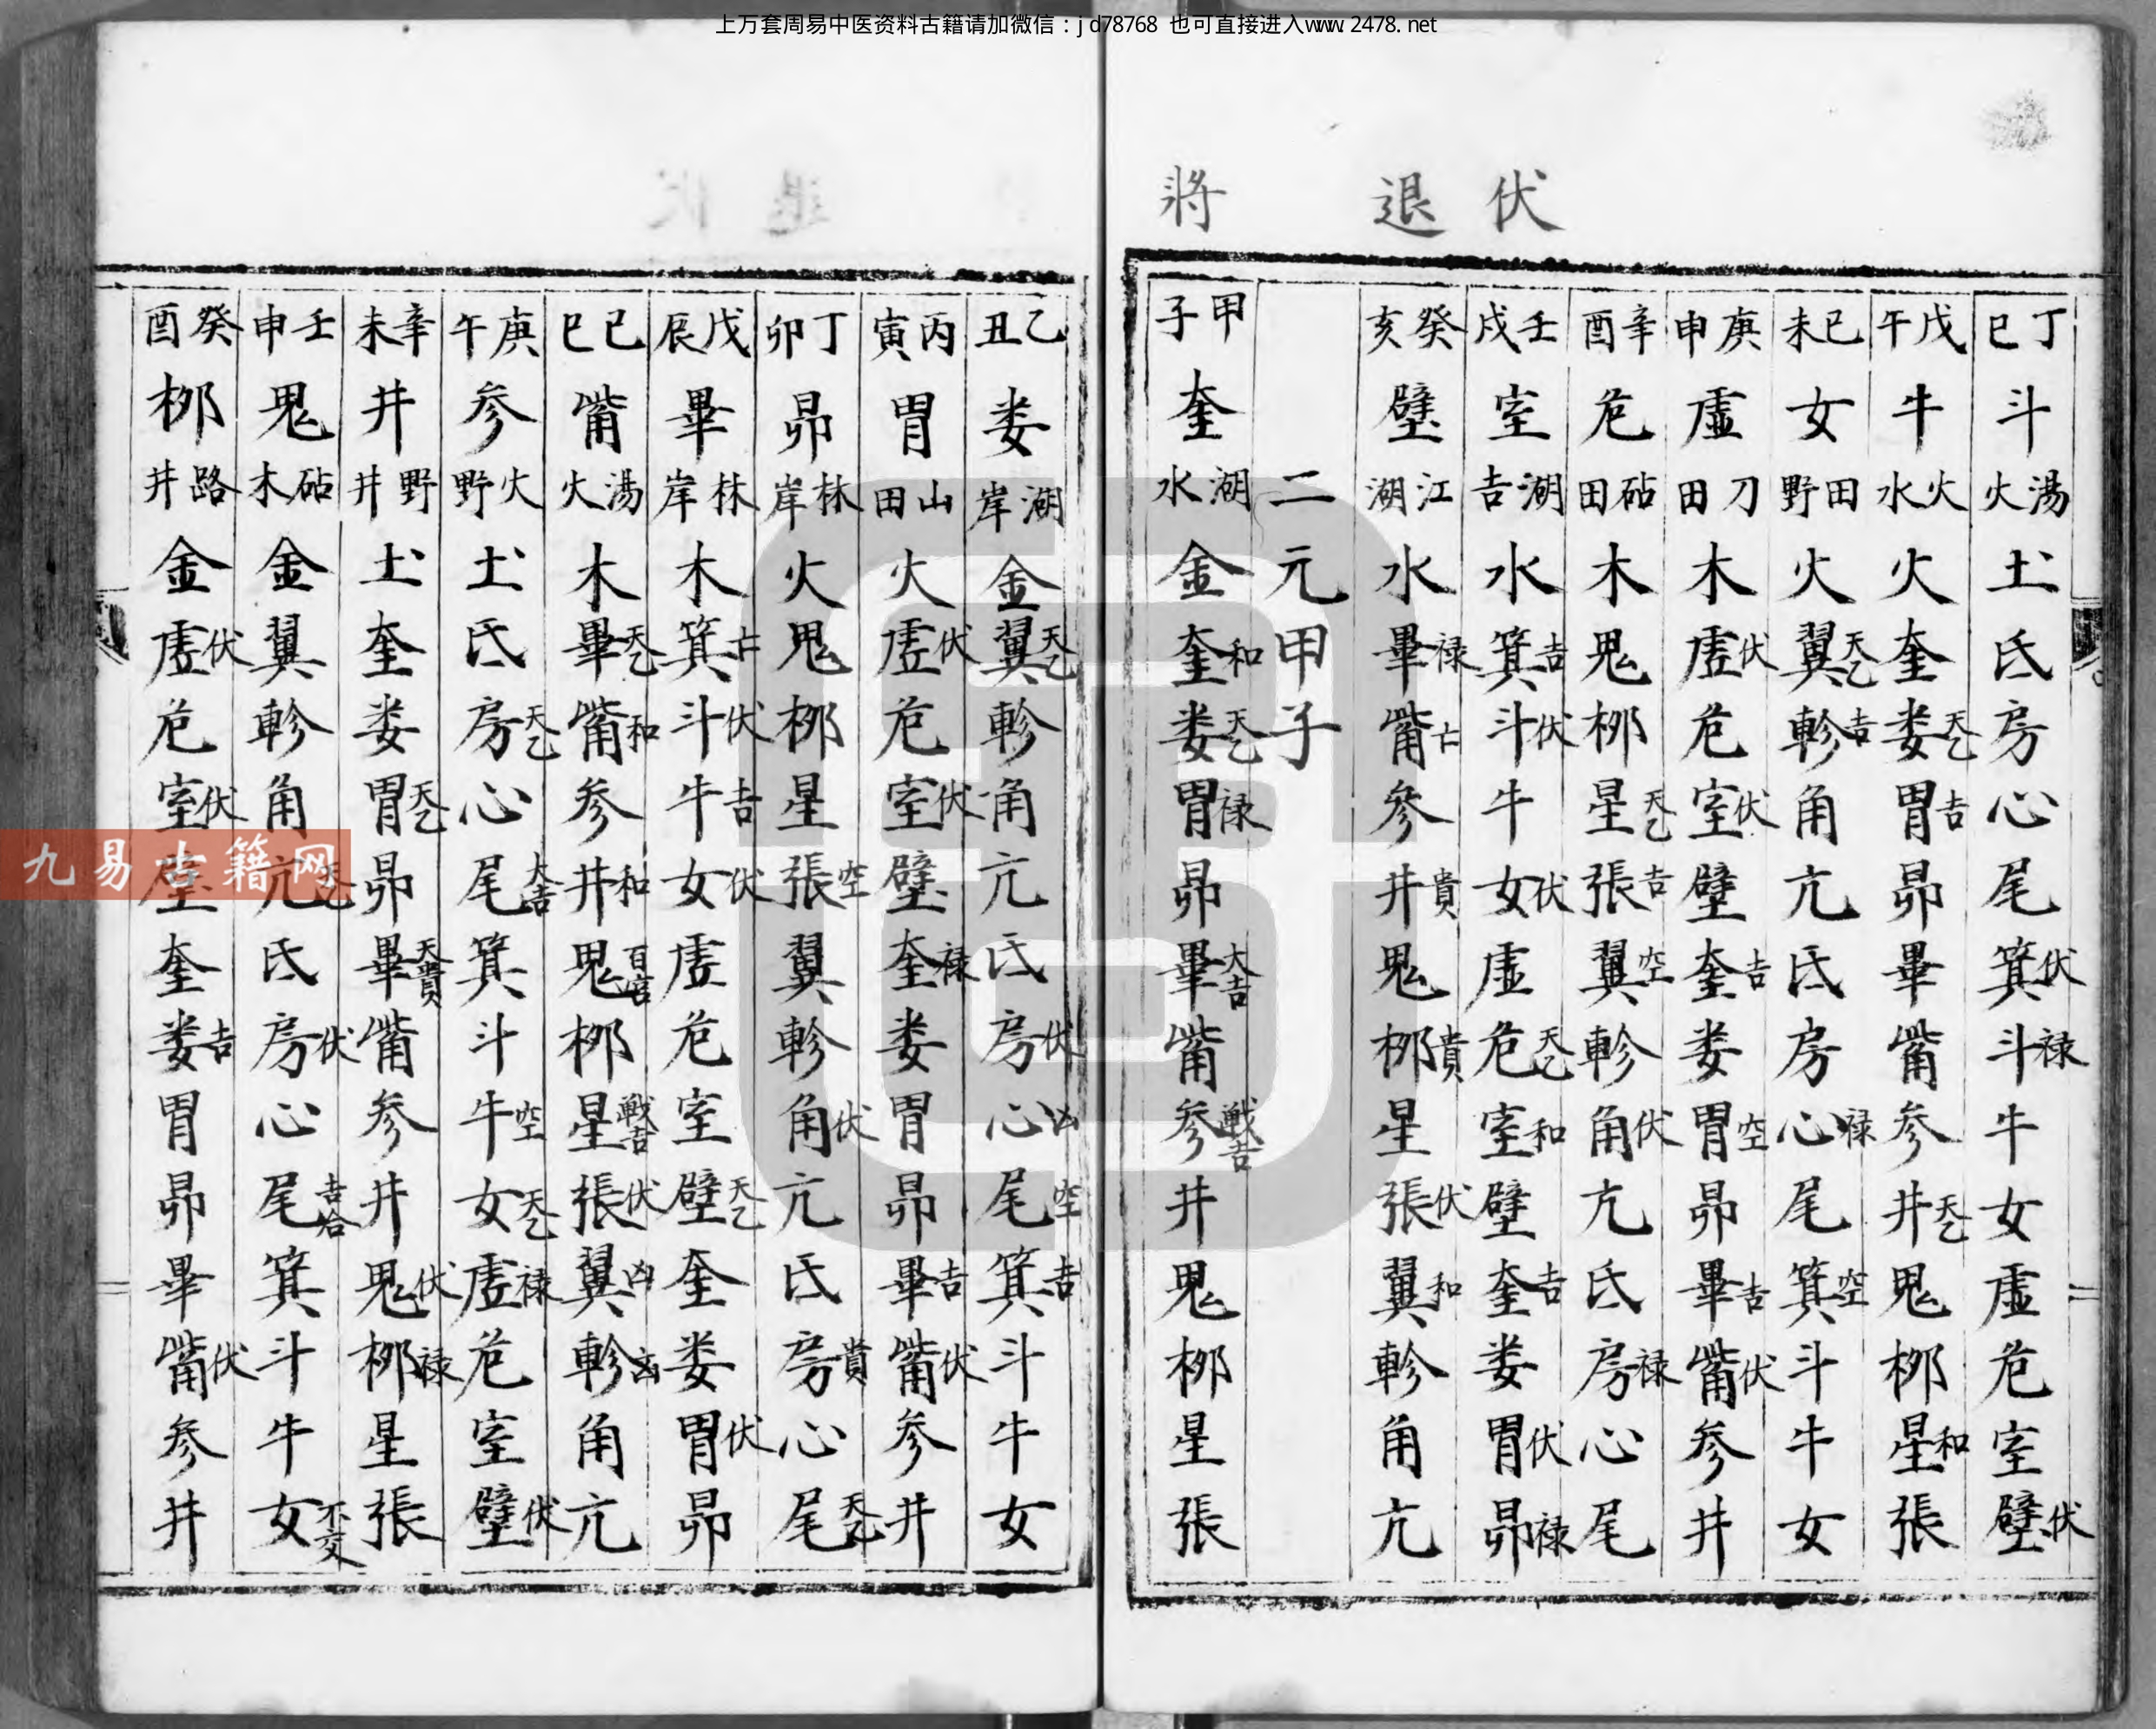 上万套周易中医资料古籍请加微信：jd78768 也可直接进入www.2478.net
伏
退
將
丁巳斗湯火土氐房心尾箕伏斗禄牛女虛危室壁伏
戊午牛火水火奎娄天乙胃吉昴畢觜参井天乙鬼柳星和張
己未女田野火翼天乙軫吉角亢氐房心禄尾箕空斗牛女
庚申虛刀田木虛伏危室伏壁奎吉娄胃空昴畢吉觜伏参井
辛酉危砧田木鬼柳星天乙張吉翼空軫角伏亢氐房禄心尾
壬戌室湖吉水箕吉斗伏牛女伏虛危天乙室和壁奎吉娄胃伏昴禄
癸亥壁江湖水畢禄觜亡参井貴鬼柳貴星張伏翼和軫角亢
二元甲子
甲子奎湖水金奎和娄天乙胃禄昴畢大吉觜参戰吉井鬼柳星張
乙丑娄湖岸金翼天乙軫角亢氐房伏心凶尾空箕吉斗牛女
丙寅胃山田火虛伏危室伏壁奎禄娄胃昴畢吉觜伏参井
丁卯昴林岸火鬼柳星張空翼軫角伏亢氐房貴心尾天乙
戊辰畢林岸木箕亡斗伏牛吉女伏虛危室壁天乙奎娄胃伏昴
己巳觜湯火木畢天乙觜和参井和鬼柳星戰吉張伏翼凶軫凶角亢
庚午参火野土氐房天乙心尾大吉箕斗牛空女天乙虛禄危室壁伏
辛未井野井土奎娄胃天乙昴畢天貴觜参井鬼伏柳禄星張
壬申鬼砧木金翼軫角亢天乙氐房伏心尾吉合箕斗牛女不交
癸酉柳路井金虛伏危室伏壁奎娄吉胃昴畢觜伏参井
九易古籍网